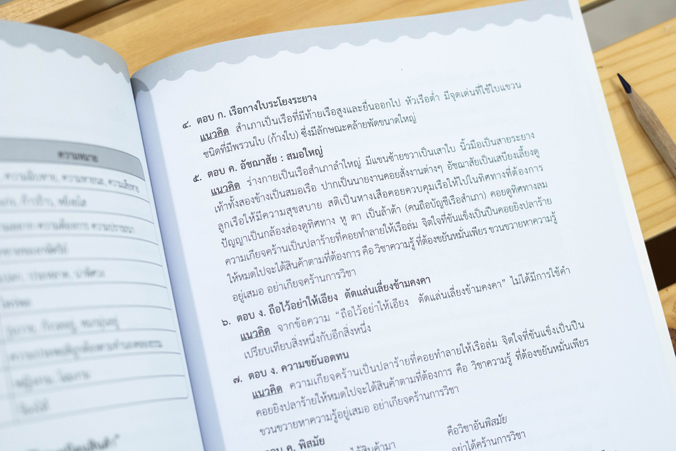 ความหมาย
๔. ตอบ ก. เรือกางใบระโยงระยาง
แนวคิด สำเภาเป็นเรือที่มีท้ายเรือสูงและยื่นออกไป หัวเรือต่ำ มีจุดเด่นที่ใช้ใบแขวน
ชนิดที่มีพรวนใบ (ก้างใบ) ซึ่งมีลักษณะคล้ายพัดขนาดใหญ่
๕. ตอบ ค. อัชฌาสัย : สมอใหญ่
แนวคิด ร่างกายเป็นเรือสำเภาลำใหญ่ มีแขนซ้ายขวาเป็นเสาใบ นิ้วมือเป็นสายระยาง
เท้าทั้งสองข้างเป็นสมอเรือ ปากเป็นนายงานคอยสั่งงานต่างๆ อัชฌาสัยเป็นเสบียงเลี้ยงดู
ลูกเรือให้มีความสุขสบาย สติเป็นหางเสือคอยควบคุมเรือให้ไปในทิศทางที่ต้องการ
ปัญญาเป็นกล้องส่องดูทิศทาง หู ตา เป็นล้าต้า (คนถือบัญชีเรือสำเภา) คอยดูทิศทางลม
ความเกียจคร้านเป็นปลาร้ายที่คอยทำลายให้เรือล่ม จิตใจที่ขันแข็งเป็นปืนคอยยิงปลาร้าย
ให้หมดไปจะได้สินค้าตามที่ต้องการ คือ วิชาความรู้ ที่ต้องขยันหมั่นเพียร ขวนขวายหาความรู้
อยู่เสมอ อย่าเกียจคร้านการวิชา
๖. ตอบ ง. ถือไว้อย่าให้เอียง ตัดแล่นเลี่ยงข้ามคงคา
แนวคิด จากข้อความ “ถือไว้อย่าให้เอียง ตัดแล่นเลี่ยงข้ามคงคา” ไม่ได้มีการใช้คำ
เปรียบเทียบสิ่งหนึ่งกับอีกสิ่งหนึ่ง
๗. ตอบ ง. ความขยันอดทน
แนวคิด ความเกียจคร้านเป็นปลาร้ายที่คอยทำลายให้เรือล่ม จิตใจที่ขันแข็งเป็นปืน
คอยยิงปลาร้ายให้หมดไปจะได้สินค้าตามที่ต้องการ คือ วิชาความรู้ ที่ต้องขยันหมั่นเพียร
ขวนขวายหาความรู้อยู่เสมอ อย่าเกียจคร้านการวิชา
ตอบ ค. พิสมัย
คือวิชาอันพิสมัย
ได้สินค้ามา
อย่าได้คร้านการวิชา